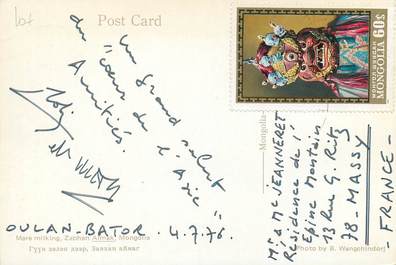 lot
Post Card
МОНГОЛ ШУУДАН
MONGOLIA 60$
Un grand salut
du "coeur de l'Asie"
Amitiés
OULAN-BATOR. 4.7.76.
Mare milking, Zabhan Aimak, Mongolia
Гүүн зэлэн дээр, Завхан аймаг
Mongolia
Mr & Me JEANNERET
Résidence de l'
Epine Montain
13 Rue G. Ritz
78-MASSY
-FRANCE-
Photo by B. Wangchindorj